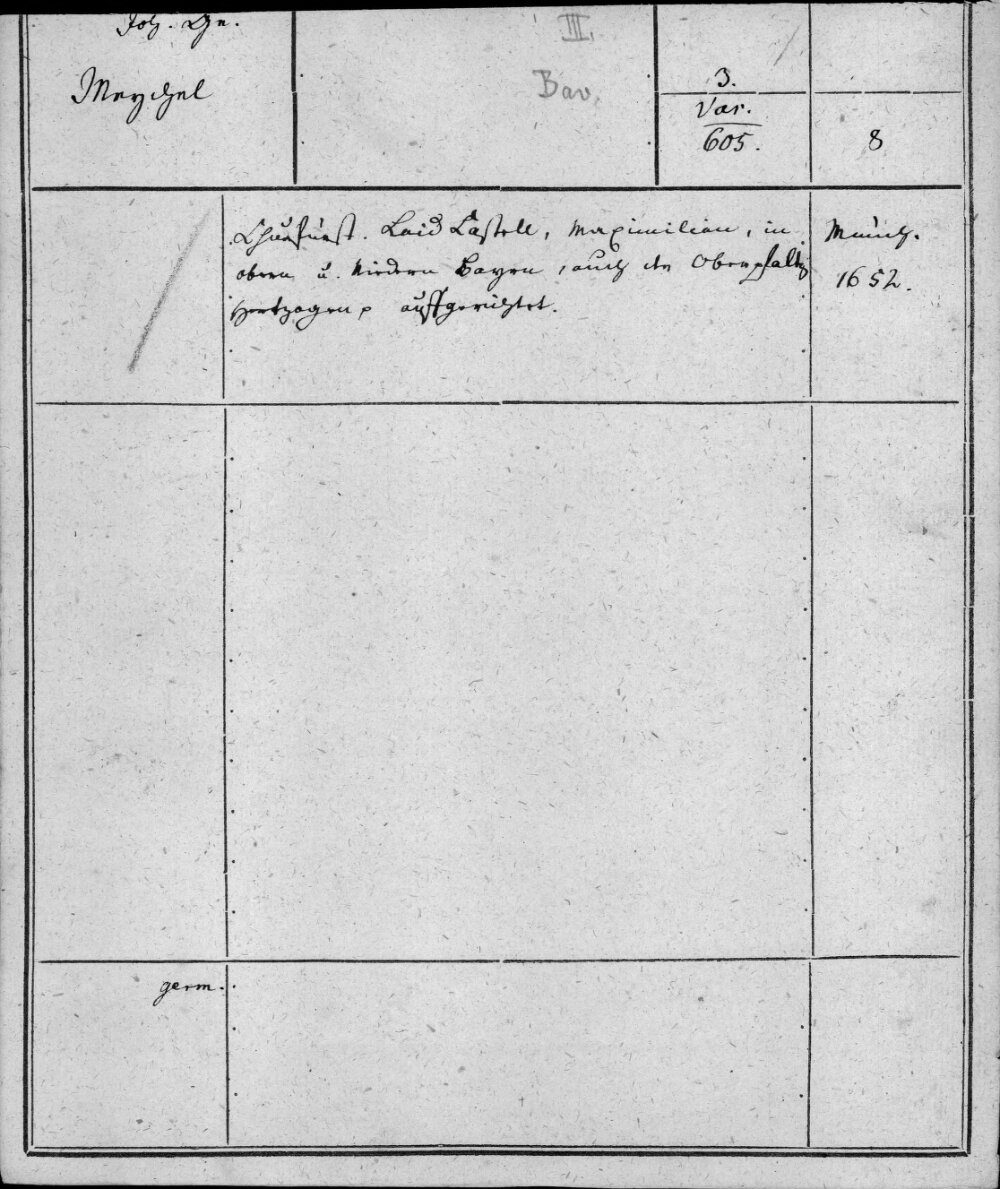 Joh. Chr.
III.
Meychel
Bav.
3.
Var.
605.
8
Churfürst. Laid Castell, Maximilian, in
obern u. Niedern Bayrn, auch der Obernpfaltz
Hertzogen p auffgerichtet.
Münch.
1652.
germ.